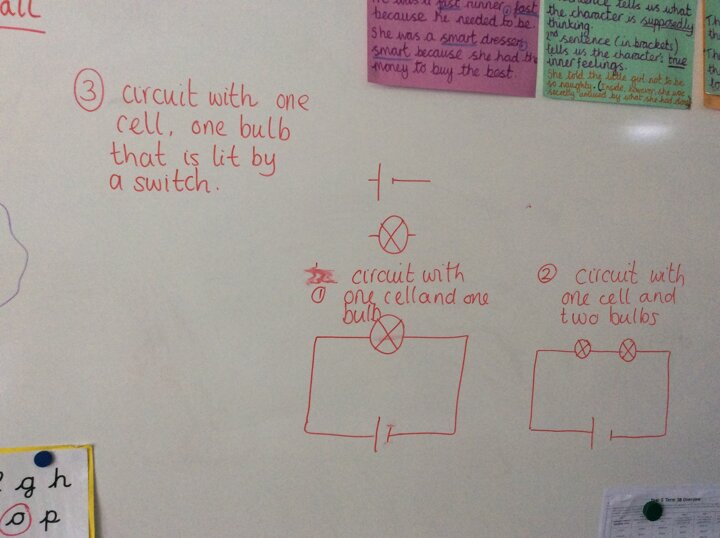 all
because he needed to be
She was a smart dresser,
smart because she had the
money to buy the best.
the character is supposedly
thinking.
2nd sentence (in brackets)
tells us the character's true
inner feelings.
She told the little girl not to be
so naughty. (Inside, however, she was
secretly amused by what she had done
③ circuit with one
cell, one bulb
that is lit by
a switch.
① circuit with
one cell and one
bulb
② circuit with
one cell and
two bulbs
g h
o p